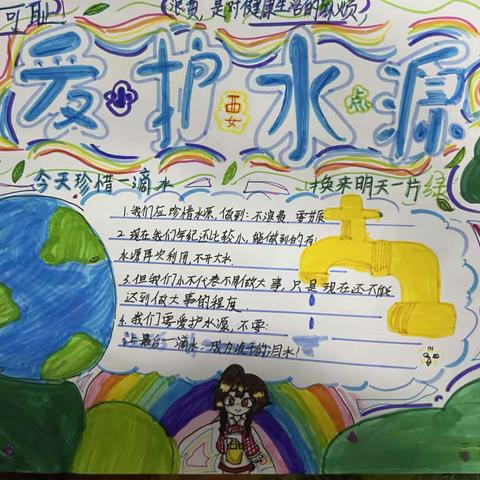 可耻
浪费,是对健康生活的
爱护水源
小
要
点
今天珍惜一滴水
换来明天一片绿
1.我们应珍惜水源,做到:不浪费,要节
2.现在我们年纪还比较小,能做到的有:
水源再次利用,不开大水
3.但我们小不代表不用做大事,只是现在还不能
达到做大事的程度
4.我们要爱护水源,不要:
让最后一滴水,成为流干的泪水!